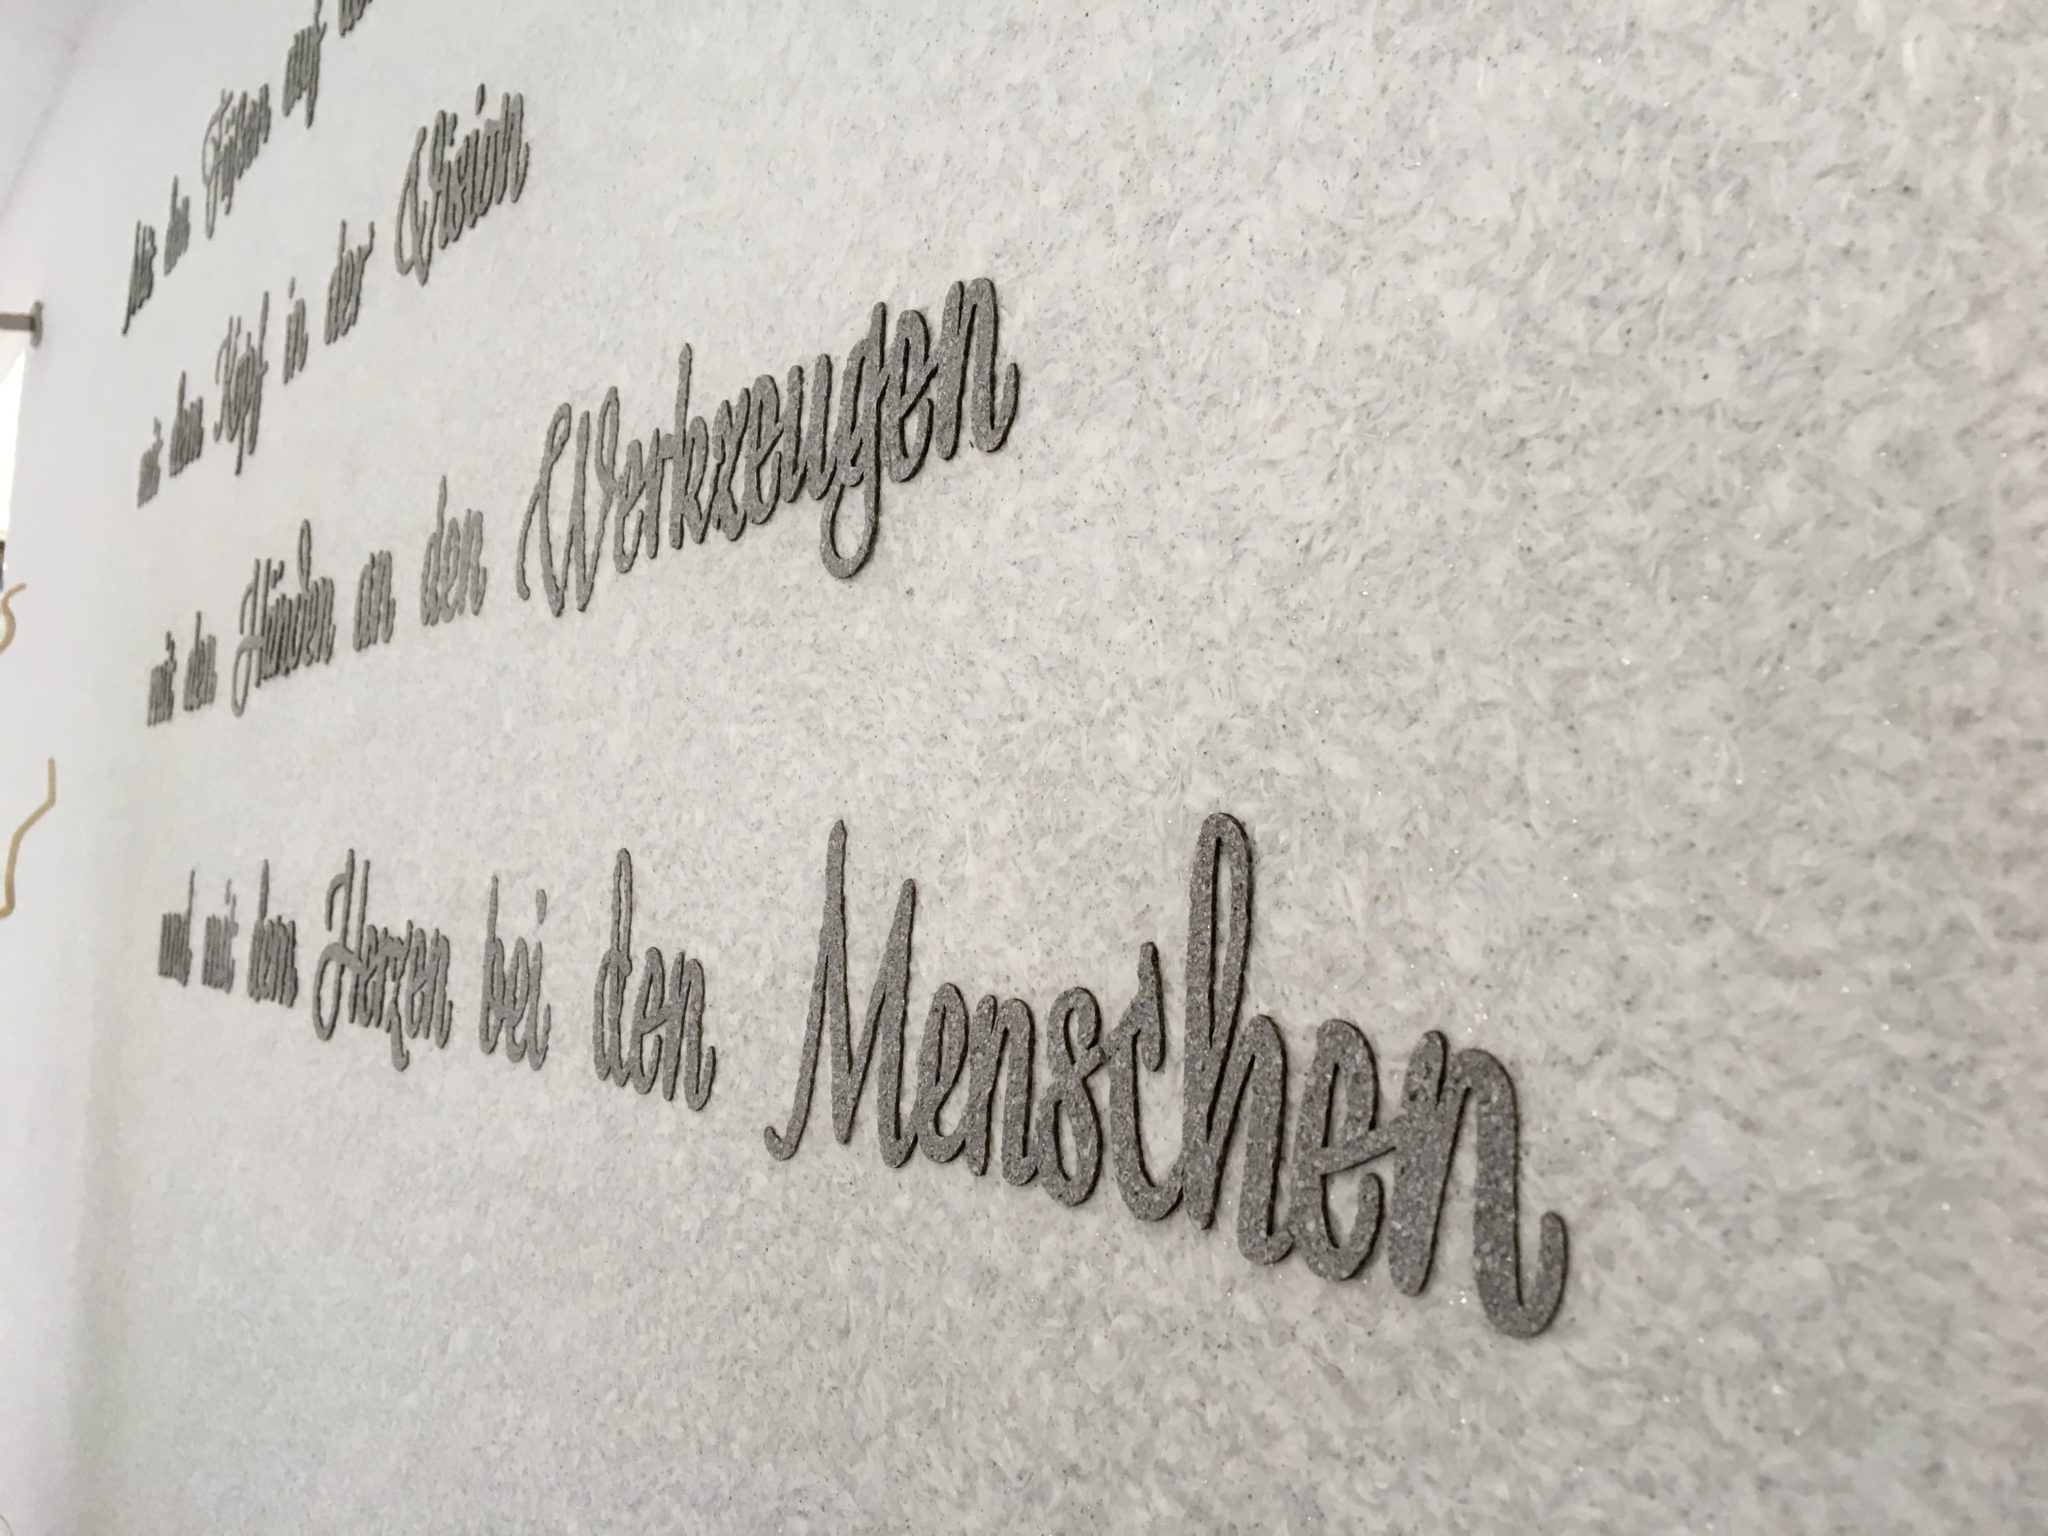 Mit den Füßen auf
mit dem Kopf in der Vision
mit den Händen an den Werkzeugen
und mit dem Herzen bei den Menschen